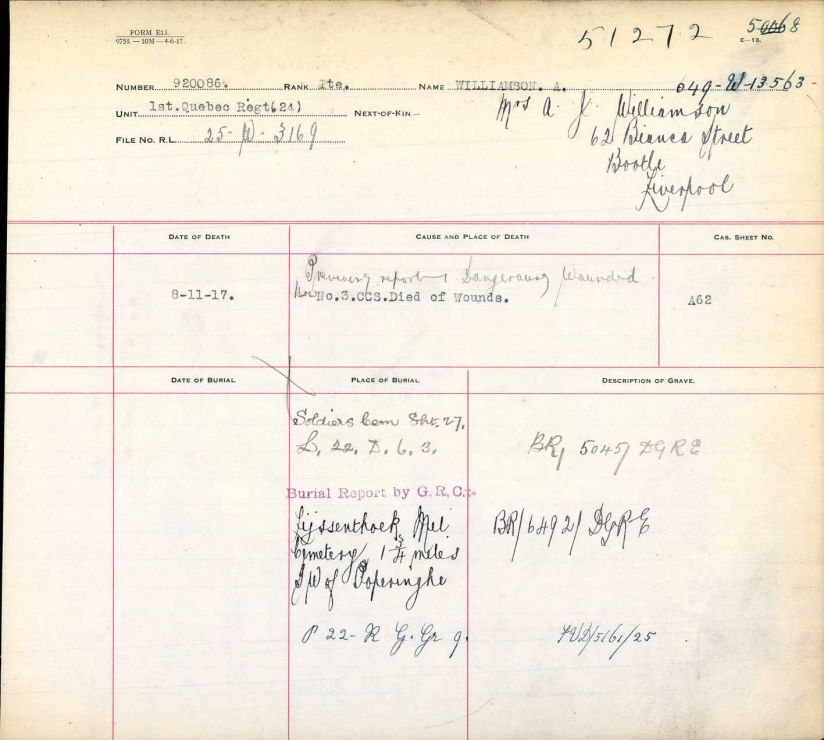 FORM E13.
9753.—10M—4-6-17.
51272
50068
E—13.
NUMBER 920086. RANK Pte. NAME WILLIAMSON. A. 649-W-13563-
UNIT 1st.Quebec Regt(24) NEXT-OF-KIN— Mrs A. J. Williamson
62 Bianca Street
FILE No. R.L. 25-W-3169
Bootle
Liverpool
DATE OF DEATH CAUSE AND PLACE OF DEATH CAS. SHEET NO.
Previously reported Dangerously Wounded
8-11-17. now No.3.CCS.Died of Wounds. A62
DATE OF BURIAL PLACE OF BURIAL DESCRIPTION OF GRAVE.
Soldiers Cem Sht. 27.
L. 22. D. 6. 3. BR/ 5045/ DGRE
Burial Report by G.R.C:-
Lijssenthoek Mil BR/6492/ DGRE
Cemetery 1 3/4 miles
SW of Poperinghe
P 22- R G. Gr 9.